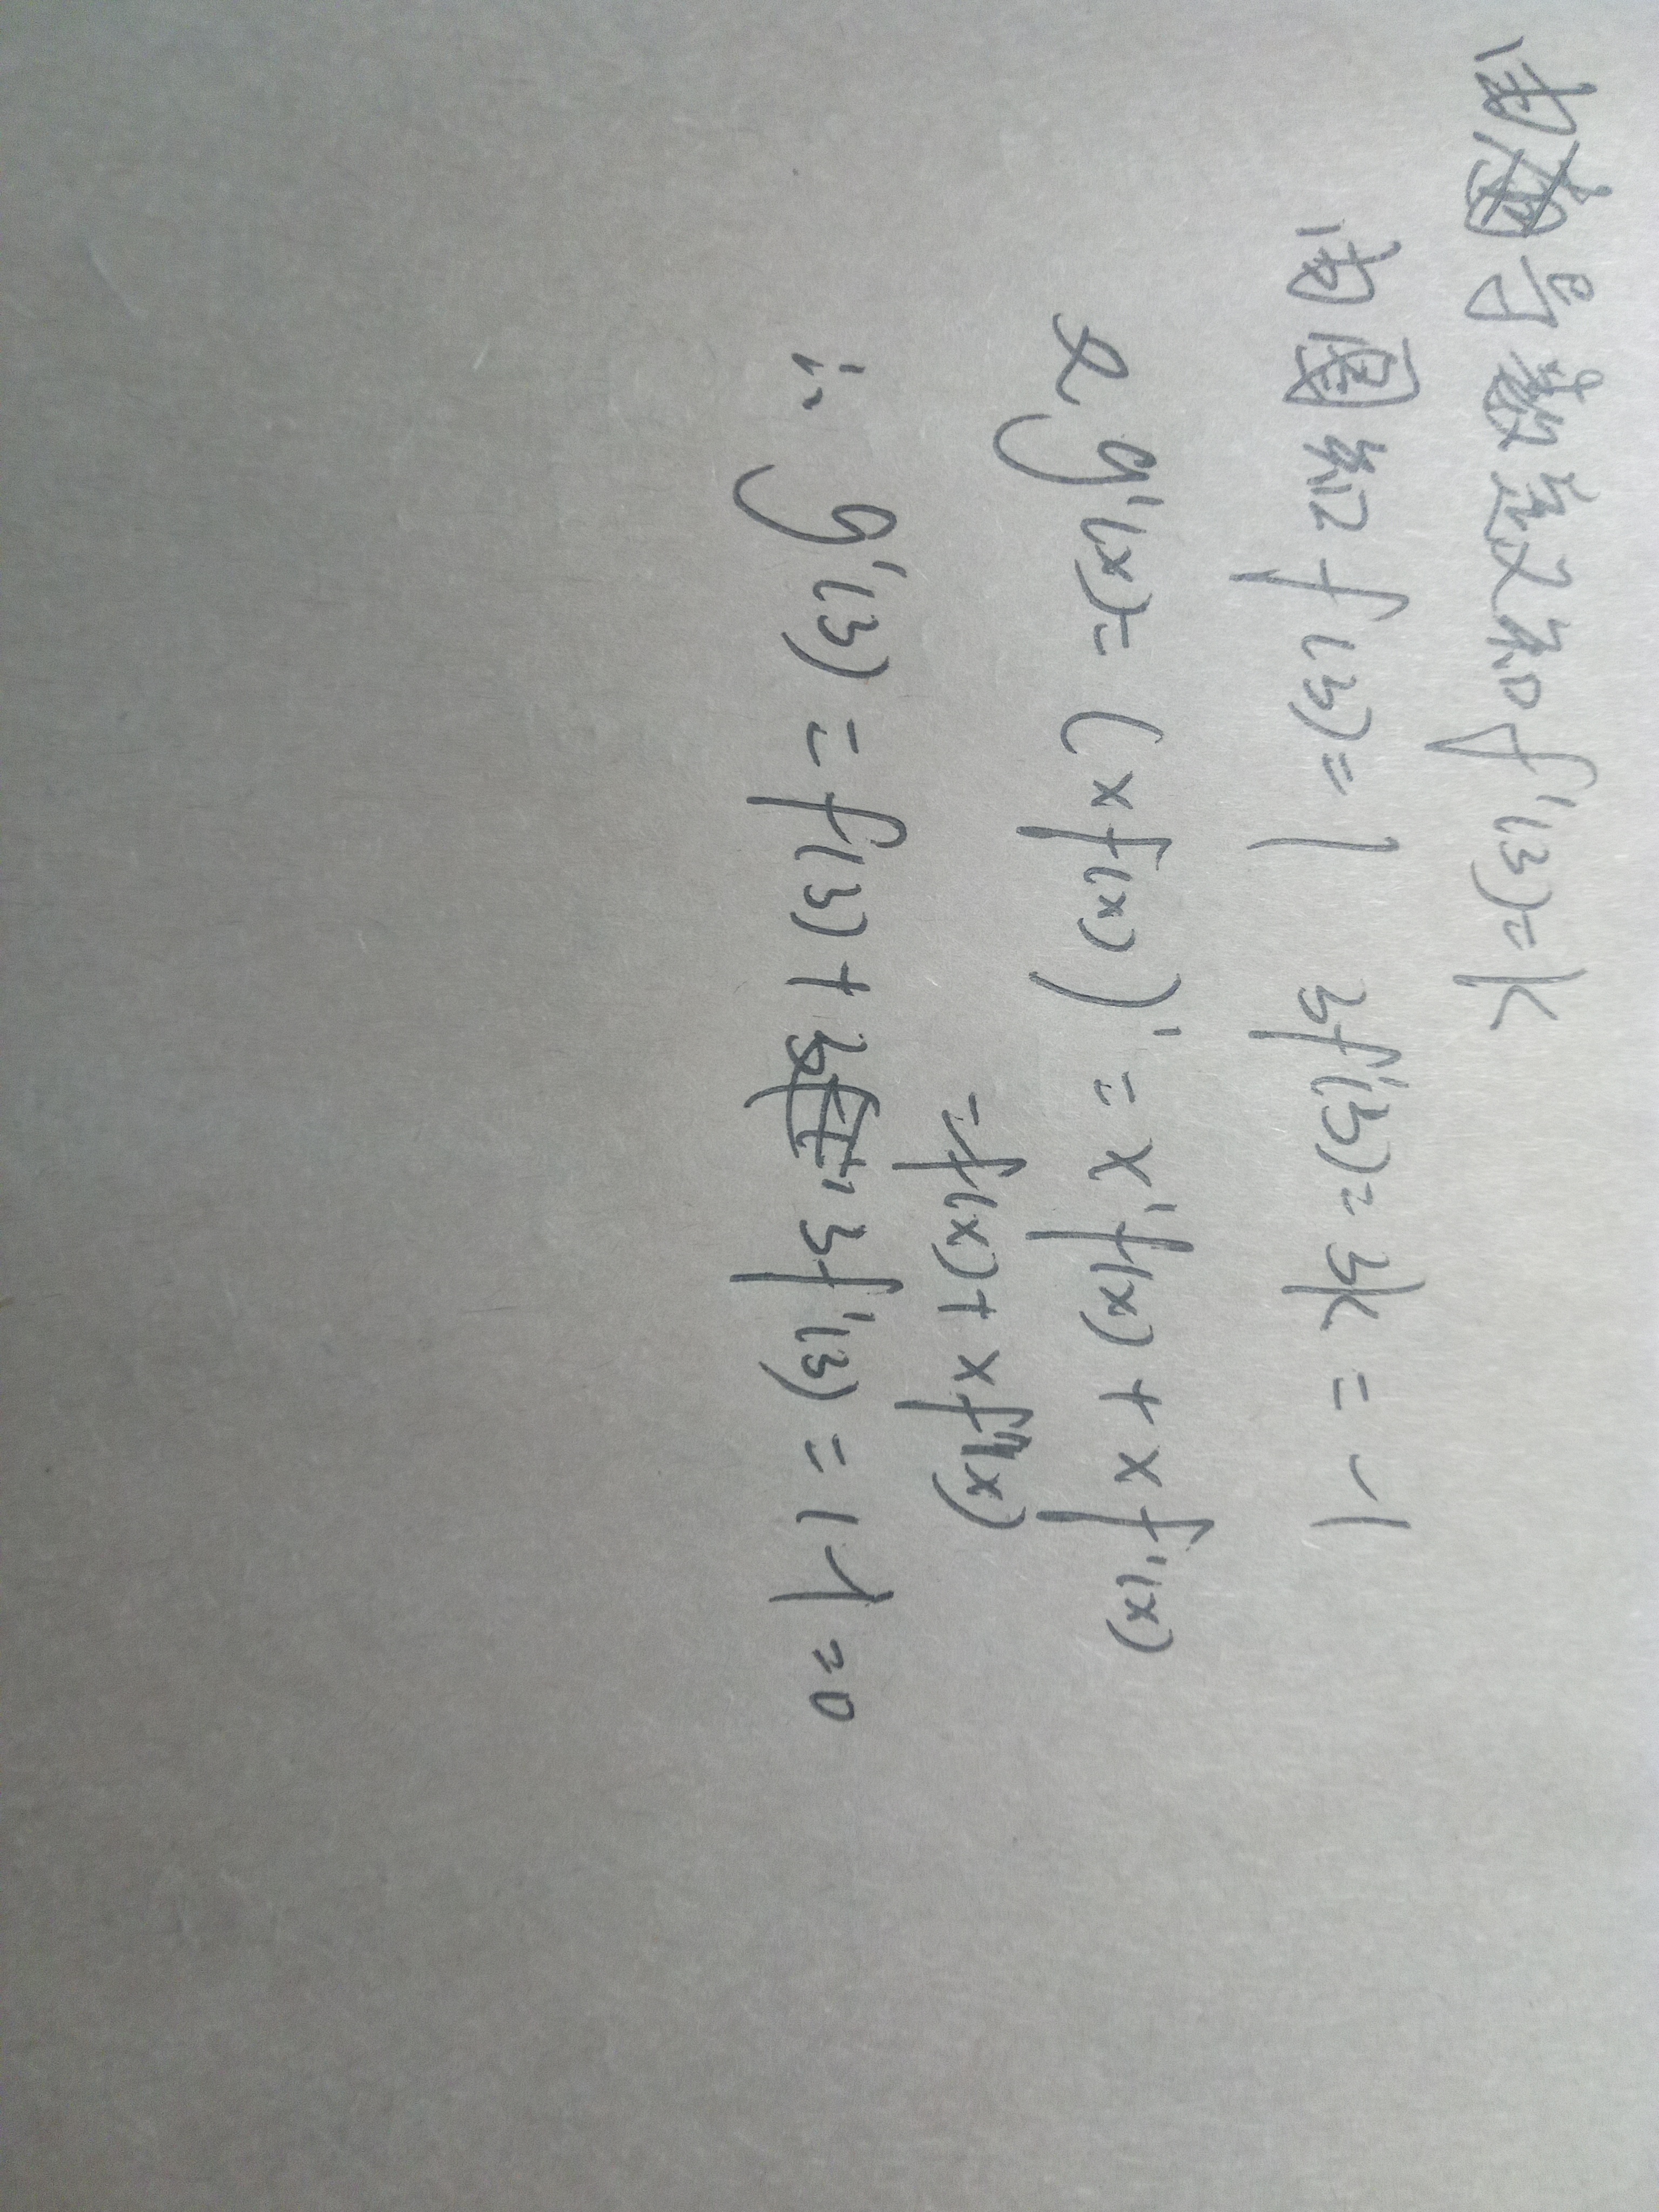 由导数意义知f'(3)=k
由图知f(3)=1 3f'(3)=3k=-1
又g'(x)=(xf(x))'=x'f(x)+xf'(x)
=f(x)+xf'(x)
∴g'(3)=f(3)+3f'(3)=1-1=0